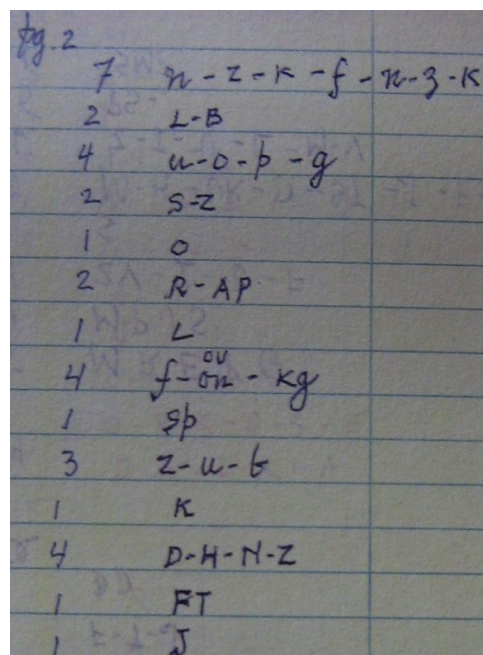 pg. 2
7 n - z - k - f - n - z - K
2 L-B
4 u - o - p - g
2 S-Z
1 O
2 R-AP
1 L
ou
4 f - on - kg
1 Sp
3 z - u - t
1 K
4 D-H-N-Z
1 FT
1 J